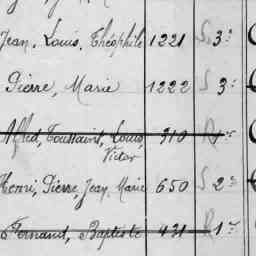 Jean, Louis, Théophile 1221 S. 3e
Pierre, Marie 1222 S 3e
Alfred, Toussaint, Louis, 310 R 1er
Victor
Henri, Pierre, Jean, Marie 650 S 2e
Fernand, Baptiste 431 R 1er